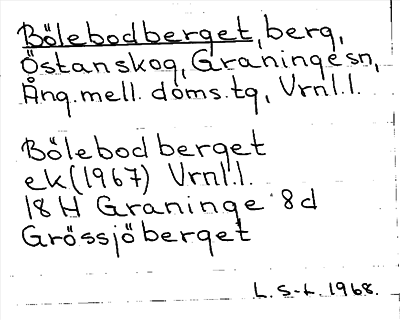 Bölebodberget, berg,
Östanskog, Graninge sn,
Ång. mell. doms. tg, Vrnl. l.
Bölebodberget
ek (1967) Vrnl. l.
18 H Graninge 8 d
Grössjöberget
L. S-L. 1968.